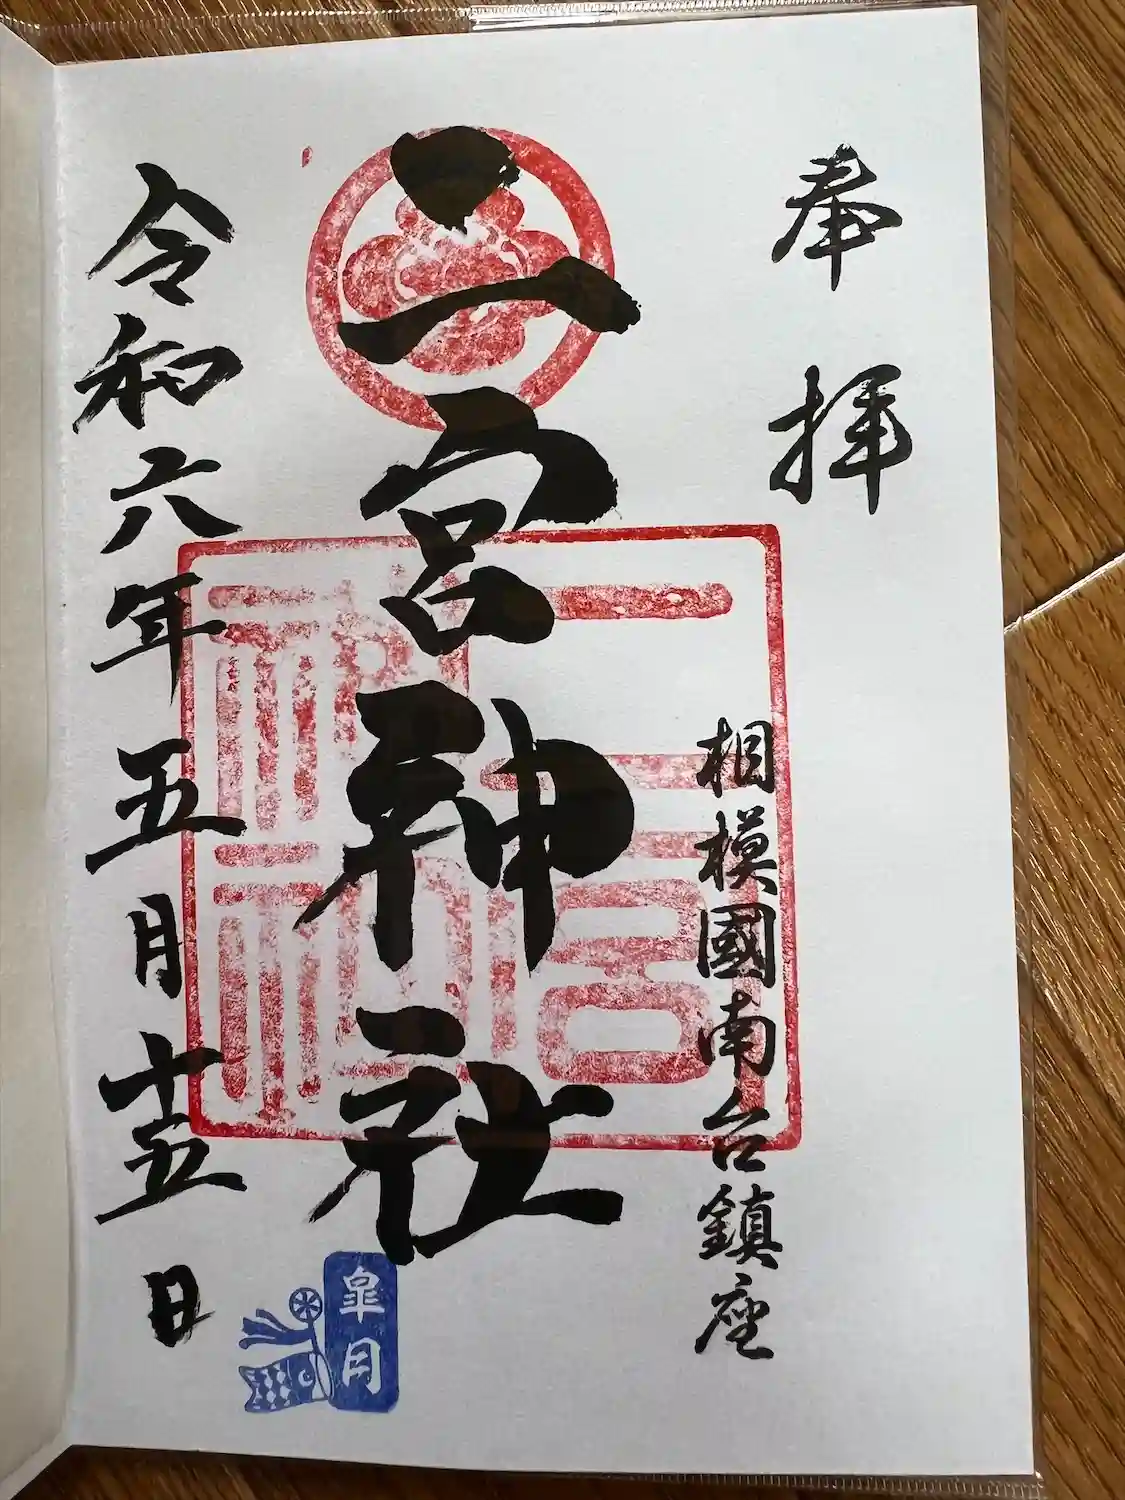 奉拝
相模國南台鎮座
二宮神社
二宮神社
皐月
令和六年五月十五日